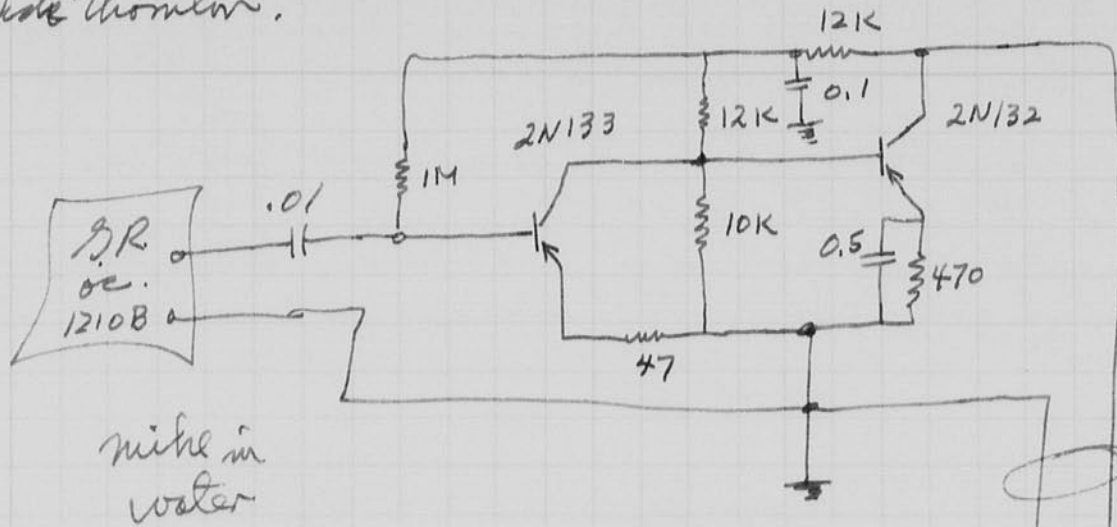 12K
0.1
12K
2N133
2N132
1M
.01
10K
0.5
470
G.R.
1210B
47
mike in
water